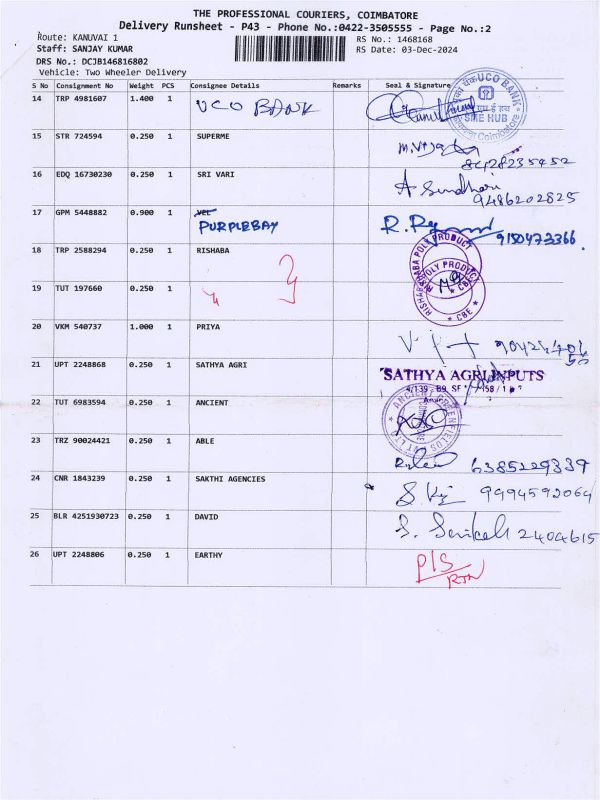 THE PROFESSIONAL COURIERS, COIMBATORE
Delivery Runsheet - P43 - Phone No.:0422-3505555 - Page No.:2
Route: KANUVAI 1
RS No.: 1468168
Staff: SANJAY KUMAR
RS Date: 03-Dec-2024
DRS No.: DCJB146816802
Vehicle: Two Wheeler Delivery
S No Consignment No Weight PCS Consignee Details Remarks Seal & Signature
14 TRP 4981607 1.400 1 UCO BANK
UCO BANK
SME HUB
Coimbatore
15 STR 724594 0.250 1 SUPERME
8428235452
16 EDQ 16730230 0.250 1 SRI VARI
A Sindhari
9486202825
17 GPM 5448882 0.900 1 VEL
PURPLEBAY
9150473366
18 TRP 2588294 0.250 1 RISHABA
RISHABA POLY PRODUCT
19 TUT 197660 0.250 1
POLY PRODUCT
* CBE *
20 VKM 540737 1.000 1 PRIYA
21 UPT 2248868 0.250 1 SATHYA AGRI
SATHYA AGRI INPUTS
22 TUT 6983594 0.250 1 ANCIENT
23 TRZ 90024421 0.250 1 ABLE
6385229339
24 CNR 1843239 0.250 1 SAKTHI AGENCIES
9994592064
25 BLR 4251930723 0.250 1 DAVID
2404615
26 UPT 2248806 0.250 1 EARTHY
P/S
RTN